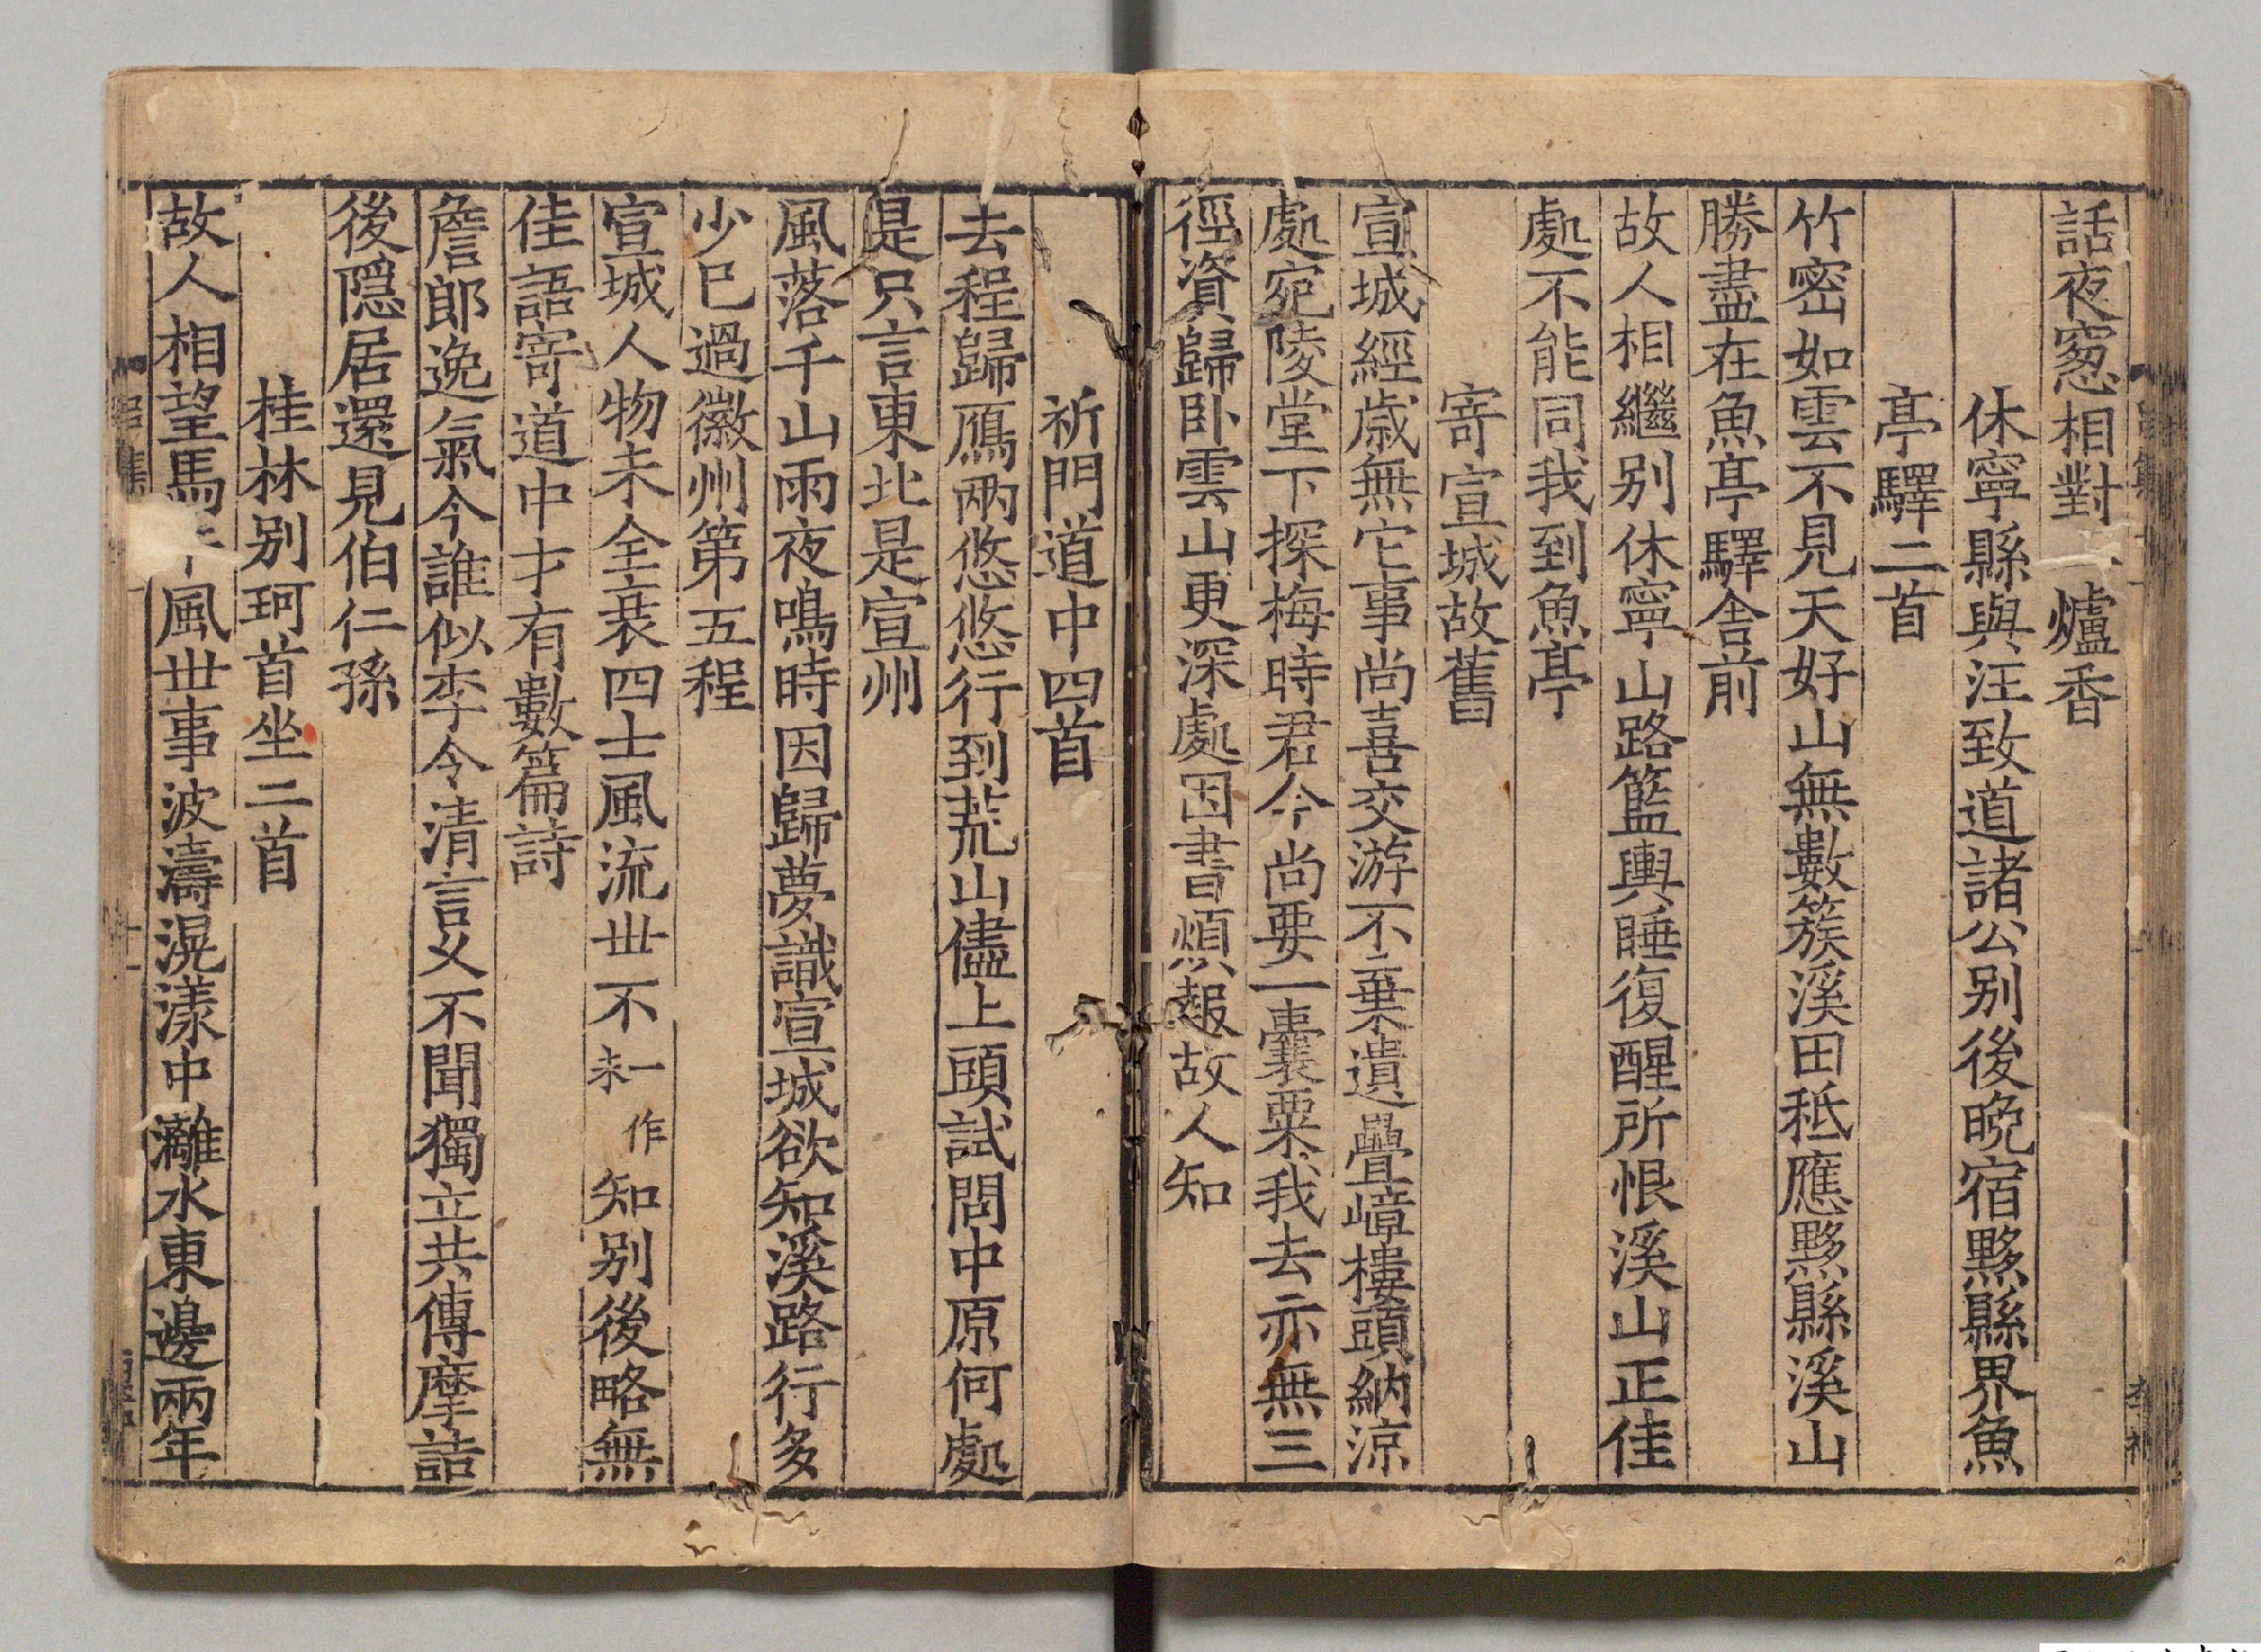 話夜窓相對爐香
休寧縣與汪致道諸公别後晩宿黟縣界魚
亭驛二首
竹密如雲不見天好山無數簇溪田秪應黟縣溪山
勝盡在魚亭驛舎前
故人相繼别休寧山路籃輿睡復醒所恨溪山正佳
處不能同我到魚亭
寄宣城故舊
宣城經歳無它事尚喜交游不棄遺疊嶂樓頭納涼
處宛陵堂下探梅時君今尚要一囊粟我去亦無三
徑資歸卧雲山更深處因書煩報故人知
祈門道中四首
去程歸鴈兩悠悠行到荒山儘上頭試問中原何處
是只言東北是宣州
風落千山雨夜鳴時因歸夢識宣城欲知溪路行多
少巳過徽州第五程
宣城人物未全衰四士風流世不一作未知别後略無
佳語寄道中才有數篇詩
詹郎逸氣今誰似李令清言乆不聞獨立共傳摩詰
後隠居還見伯仁孫
桂林别珂首坐二首
故人相望馬風世事波濤滉漾中灕水東邊兩年